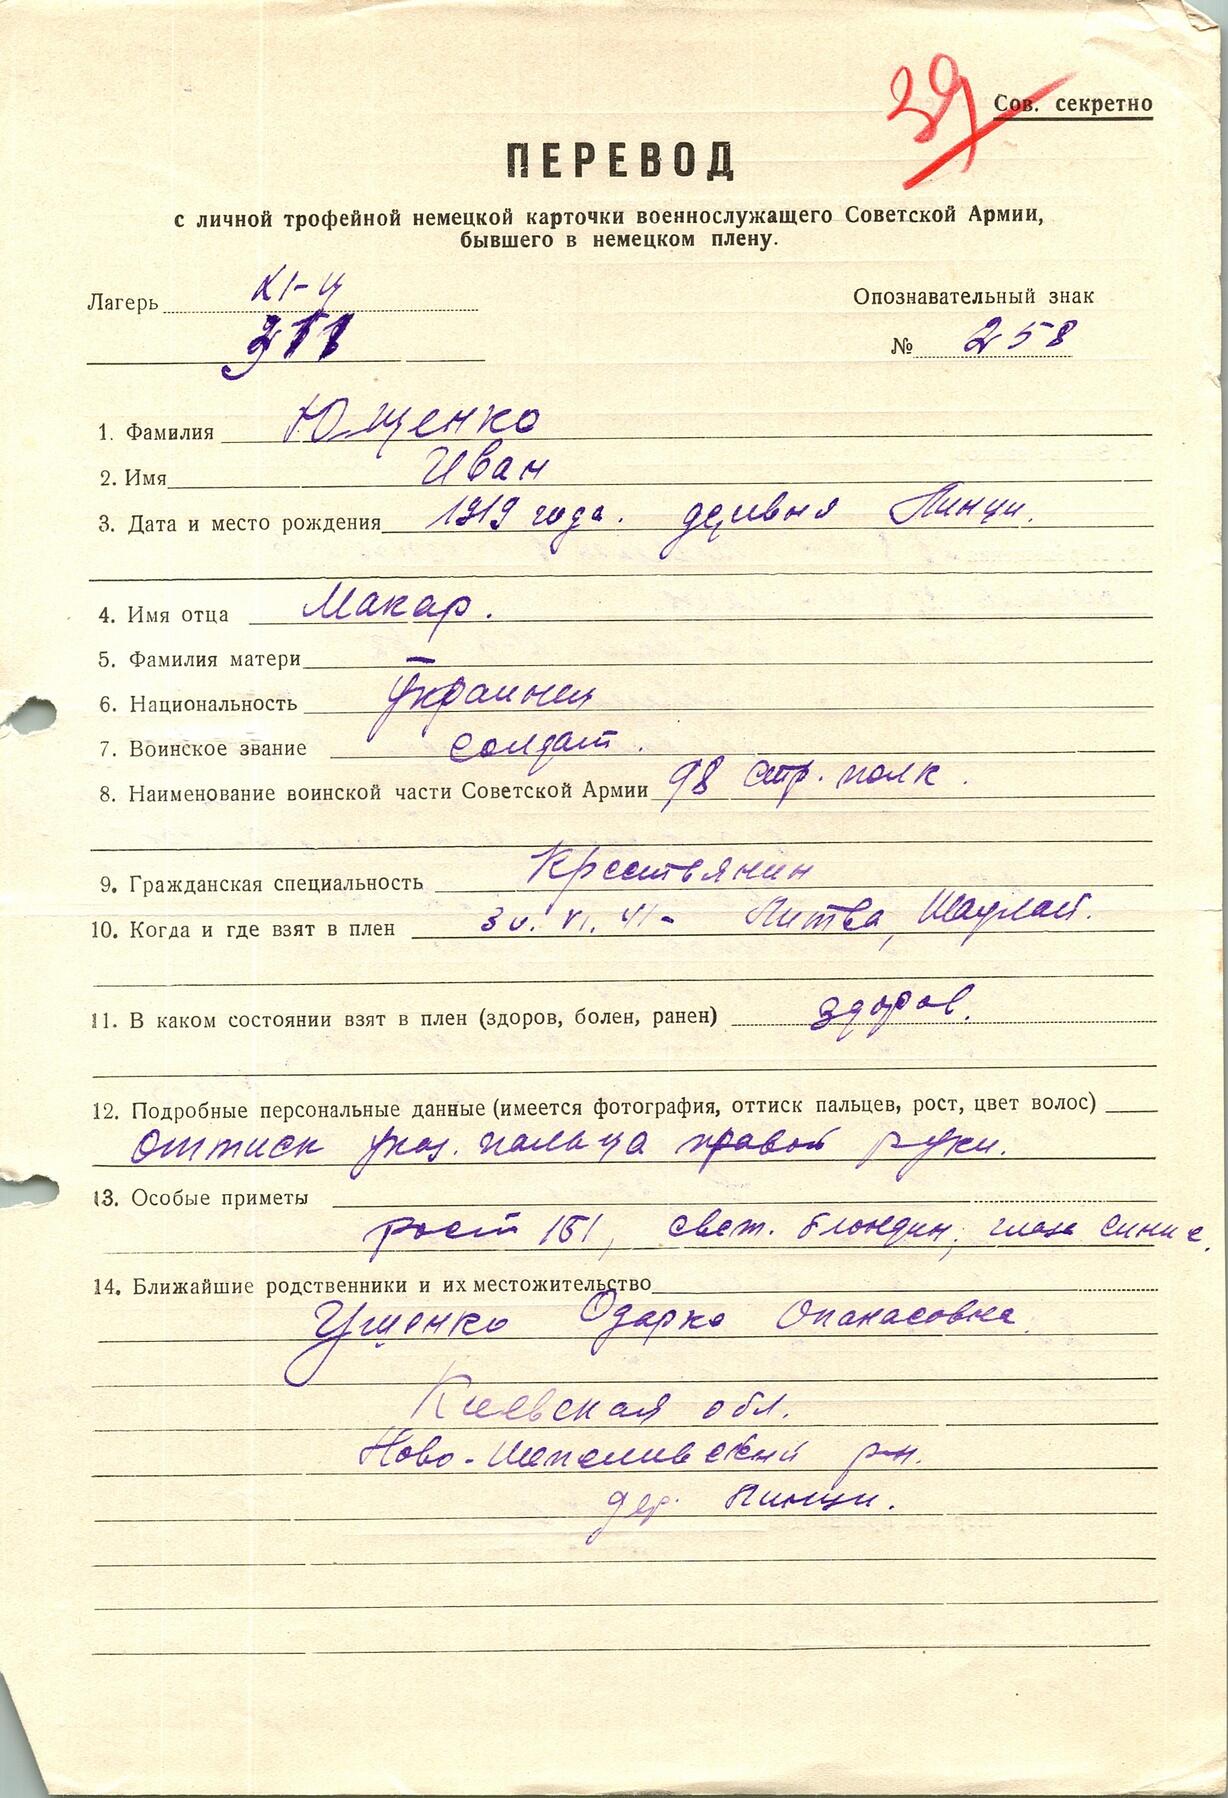 29
Сов. секретно
ПЕРЕВОД
с личной трофейной немецкой карточки военнослужащего Советской Армии,
бывшего в немецком плену.
Лагерь XI-Ц
Опознавательный знак
№ 258
1. Фамилия Ющенко
2. Имя Иван
3. Дата и место рождения 1919 года. деревня Линци.
4. Имя отца Макар.
5. Фамилия матери —
6. Национальность Украинец
7. Воинское звание солдат.
8. Наименование воинской части Советской Армии 98 стр. полк.
9. Гражданская специальность Крестьянин
10. Когда и где взят в плен 30. VI. 41- Литва, Шаулай.
11. В каком состоянии взят в плен (здоров, болен, ранен) здоров.
12. Подробные персональные данные (имеется фотография, оттиск пальцев, рост, цвет волос)
оттиск указ. пальца правой руки.
13. Особые приметы
рост 161, свет. блондин, глаза синие.
14. Ближайшие родственники и их местожительство
Ущенко Одарка Опанасовна
Киевская обл.
Ново-Шепеливский р-н.
дер. Линци.